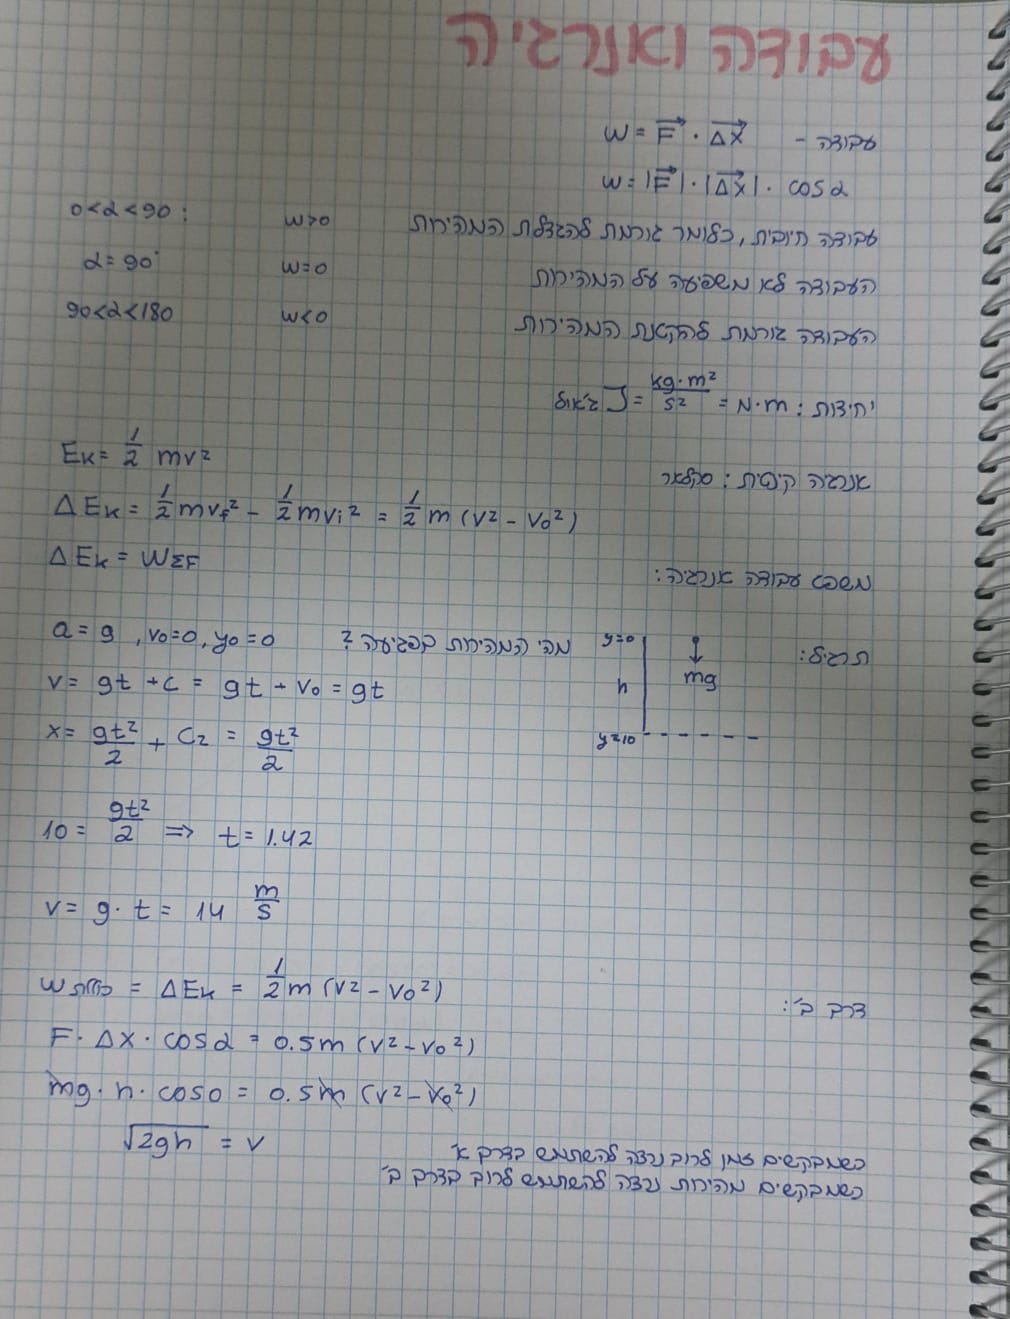 עבודה ואנרגיה
עבודה - W = F⃗ · Δx⃗
W = |F⃗| · |Δx⃗| · cosα
0<α<90 : W>0 עבודה חיובית, כלומר גורמת להגדלת המהירות
α=90° W=0 העבודה לא משפיעה על המהירות
90<α<180 W<0 העבודה גורמת להקטנת המהירות
יחידות: N·m = kg·m²/s² = J ג'אול
אנרגיה קינטית: סקלאר Eк = 1/2 mv²
ΔEк = 1/2 mvf² - 1/2 mvi² = 1/2 m (v² - v0²)
ΔEк = WΣF
משפט עבודה אנרגיה:
תרגיל: y=0 h y=10 mg מהי המהירות בפגיעה? a = g , v0=0, y0=0
v = gt + c = gt + v0 = gt
x = gt²/2 + c2 = gt²/2
10 = gt²/2 ⇒ t = 1.42
v = g · t = 14 m/s
דרך ב': Wכוללת = ΔEк = 1/2 m (v² - v0²)
F · Δx · cosα = 0.5m (v² - v0²)
mg · h · cos0 = 0.5m (v² - v0²)
√2gh = v
כשמבקשים זמן לרוב נרצה להשתמש בדרך א'
כשמבקשים מהירות נרצה להשתמש לרוב בדרך ב'